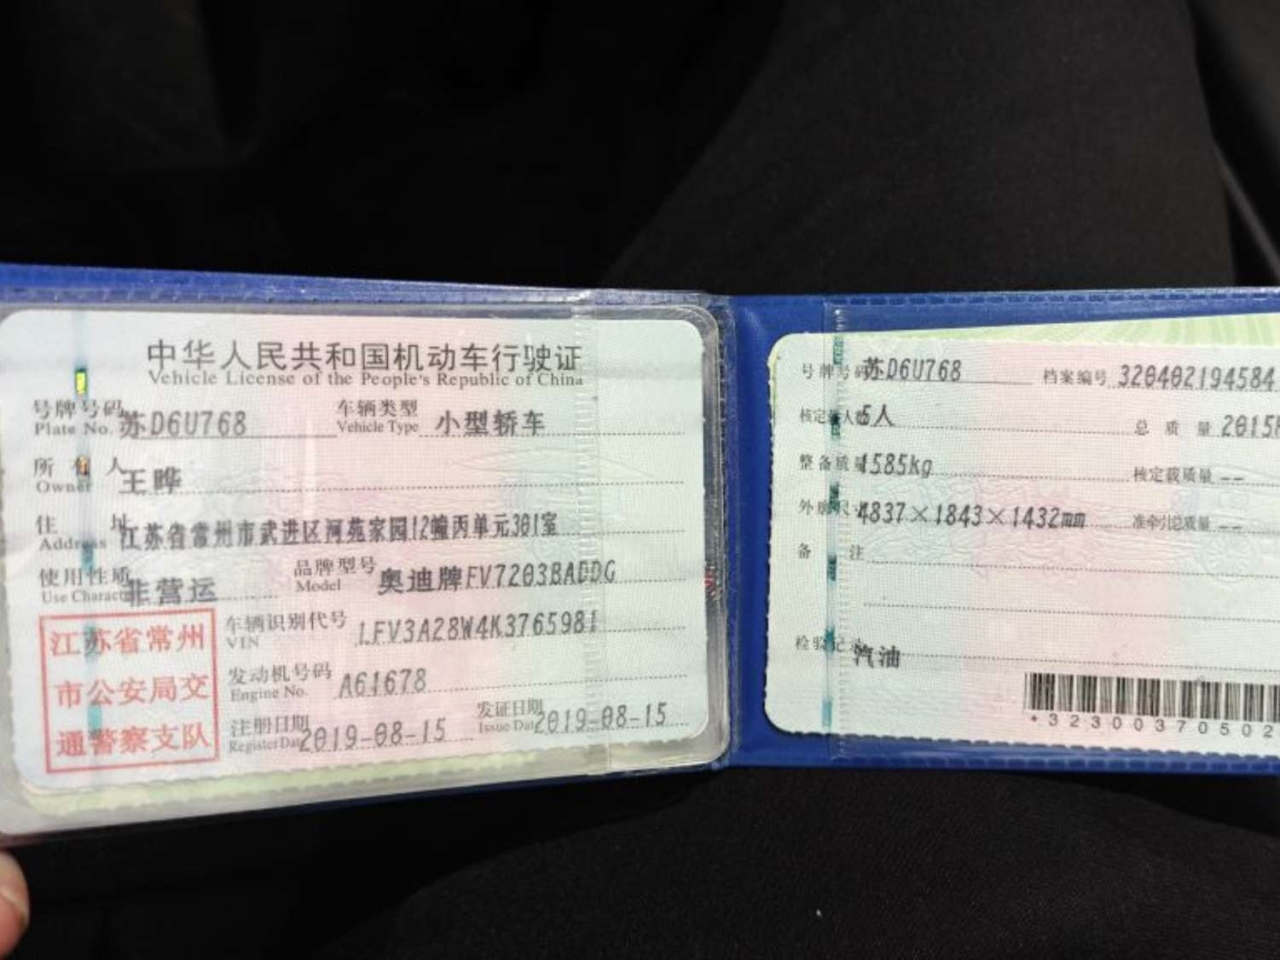 中华人民共和国机动车行驶证
Vehicle License of the People's Republic of China
号牌号码 苏D6U768 车辆类型 小型轿车
Plate No. Vehicle Type
所有人 王晔
Owner
住址 江苏省常州市武进区河苑家园12幢丙单元301室
Address
使用性质 非营运 品牌型号 奥迪牌FV7203BADDG
Use Character Model
江苏省常州
市公安局交
通警察支队
车辆识别代号 LFV3A28W4K3765981
VIN
发动机号码 A61678
Engine No.
注册日期 2019-08-15 发证日期 2019-08-15
Register Date Issue Date
号牌号码 苏D6U768 档案编号 320402194584
核定载人数 5人 总质量 2015k
整备质量 1585kg 核定载质量 --
外廓尺寸 4837×1843×1432mm 准牵引总质量 --
备注
检验记录 汽油
*32300370502